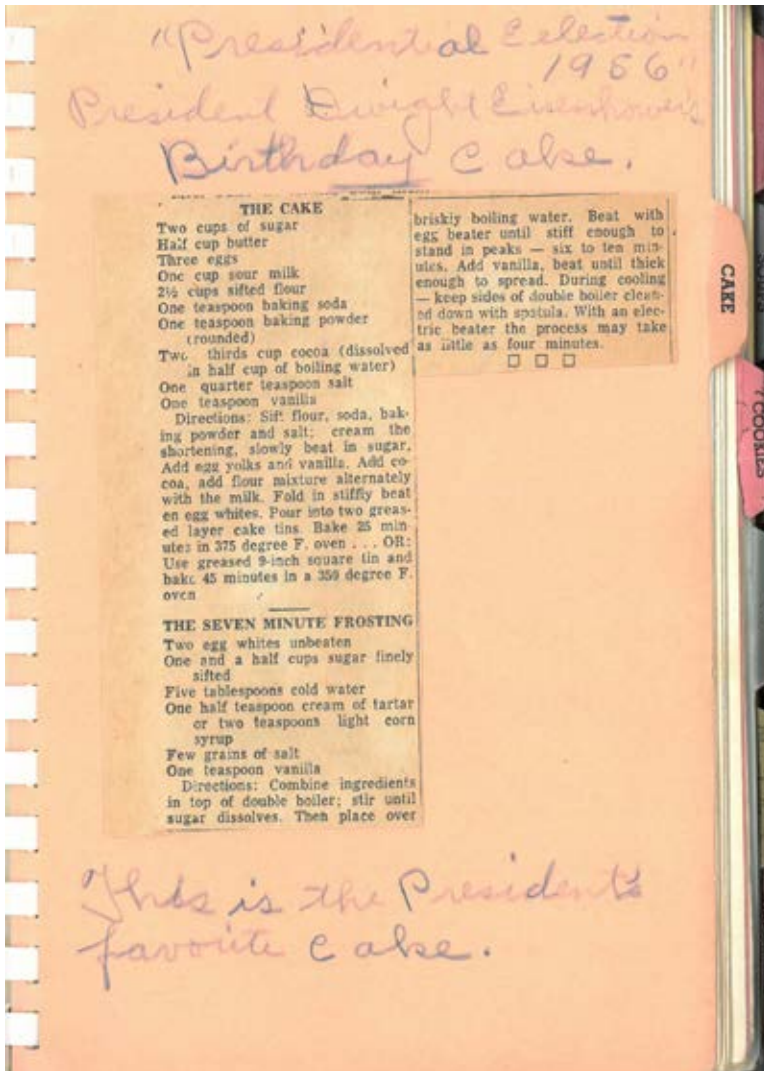 "Presidential Election
1956"
President Dwight Eisenhower's
Birthday Cake.
THE CAKE
Two cups of sugar
Half cup butter
Three eggs
One cup sour milk
2½ cups sifted flour
One teaspoon baking soda
One teaspoon baking powder
(rounded)
Two thirds cup cocoa (dissolved
in half cup of boiling water)
One quarter teaspoon salt
One teaspoon vanilla
Directions: Sift flour, soda, bak-
ing powder and salt; cream the
shortening, slowly beat in sugar.
Add egg yolks and vanilla. Add co-
coa, add flour mixture alternately
with the milk. Fold in stiffly beat
en egg whites. Pour into two greas-
ed layer cake tins. Bake 25 min-
utes in 375 degree F. oven . . . OR:
Use greased 9-inch square tin and
bake 45 minutes in a 350 degree F.
oven
THE SEVEN MINUTE FROSTING
Two egg whites unbeaten
One and a half cups sugar finely
sifted
Five tablespoons cold water
One half teaspoon cream of tartar
or two teaspoons light corn
syrup
Few grains of salt
One teaspoon vanilla
Directions: Combine ingredients
in top of double boiler; stir until
sugar dissolves. Then place over
briskly boiling water. Beat with
egg beater until stiff enough to
stand in peaks — six to ten min-
utes. Add vanilla, beat until thick
enough to spread. During cooling
— keep sides of double boiler clean-
ed down with spatula. With an elec-
tric beater the process may take
as little as four minutes.
This is the President's
favorite Cake.
CAKE
COOKIES